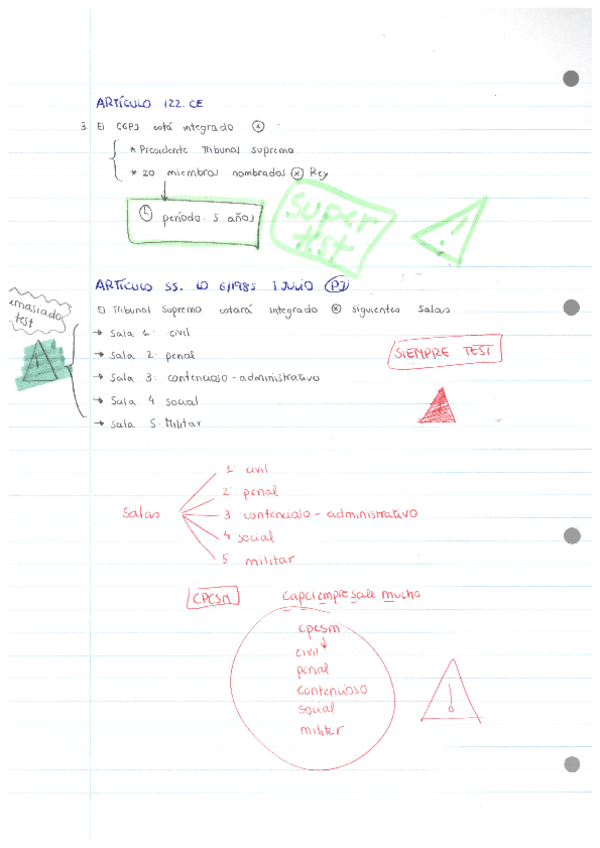 ARTÍCULO 122. CE
3. El CGPJ está integrado ⓧ
* Presidente Tribunal supremo
* 20 miembros nombrados ⓧ Rey
período: 5 años
super
test
!
ARTÍCULO 55. LO 6/1985 1 JULIO (PJ)
El Tribunal Supremo estará integrado ⓧ siguientes Salas
emasiado
test
!
→ Sala 1: civil
→ Sala 2: penal
→ Sala 3: contencioso-administrativo
→ Sala 4 social
→ Sala 5 Militar
SIEMPRE TEST
Salas
1 civil
2 penal
3 contencioso-administrativo
4 social
5 militar
CPCSM
cpcsm
civil
penal
contencioso
social
militar
!